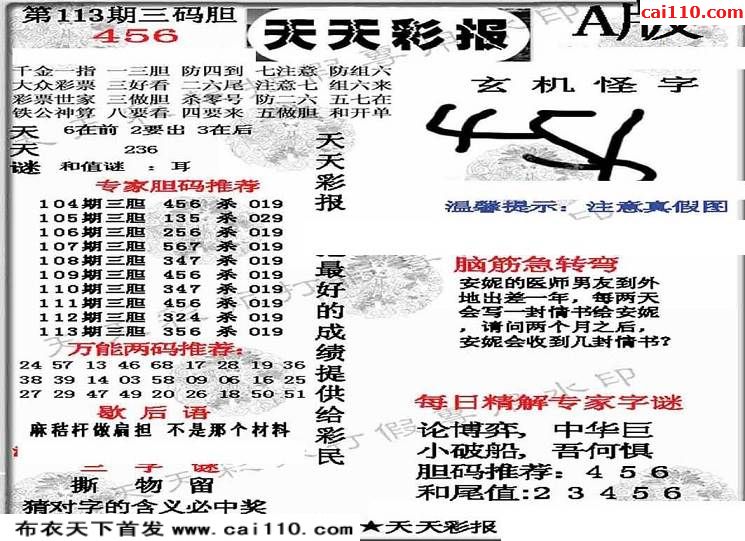 第113期三码胆
456
天天彩报
A版
cai110.com
千金一指 一三胆 防四到 七注意 防组六
大众彩票 三好看 二六尾 注意七 组六来
彩票世家 三做胆 杀零号 防二六 五七在
铁公神算 八要看 四要来 五做胆 和开单
天 6在前 2要出 3在后
天 236
谜 和值谜 : 耳
专家胆码推荐
104期三胆 456 杀 019
105期三胆 135 杀 029
106期三胆 256 杀 019
107期三胆 567 杀 019
108期三胆 347 杀 019
109期三胆 456 杀 019
110期三胆 347 杀 019
111期三胆 456 杀 019
112期三胆 324 杀 019
113期三胆 356 杀 019
万能两码推荐:
24 57 13 46 68 17 28 19 36
38 39 14 03 58 09 06 16 25
27 29 47 49 20 26 18 50 51
歇后语
麻秸杆做扁担 不是那个材料
三字谜
撕 物 留
猜对字的含义必中奖
布衣天下首发 www.cai110.com
天天彩报
最好的成绩提供给彩民
玄机怪字
温馨提示: 注意真假图
脑筋急转弯
安妮的医师男友到外
地出差一年，每两天
会写一封情书给安妮
，请问两个月之后，
安妮会收到几封情书?
每日精解专家字谜
论博弈, 中华巨
小破船, 吾何惧
胆码推荐: 4 5 6
和尾值:2 3 4 5 6
★天天彩报